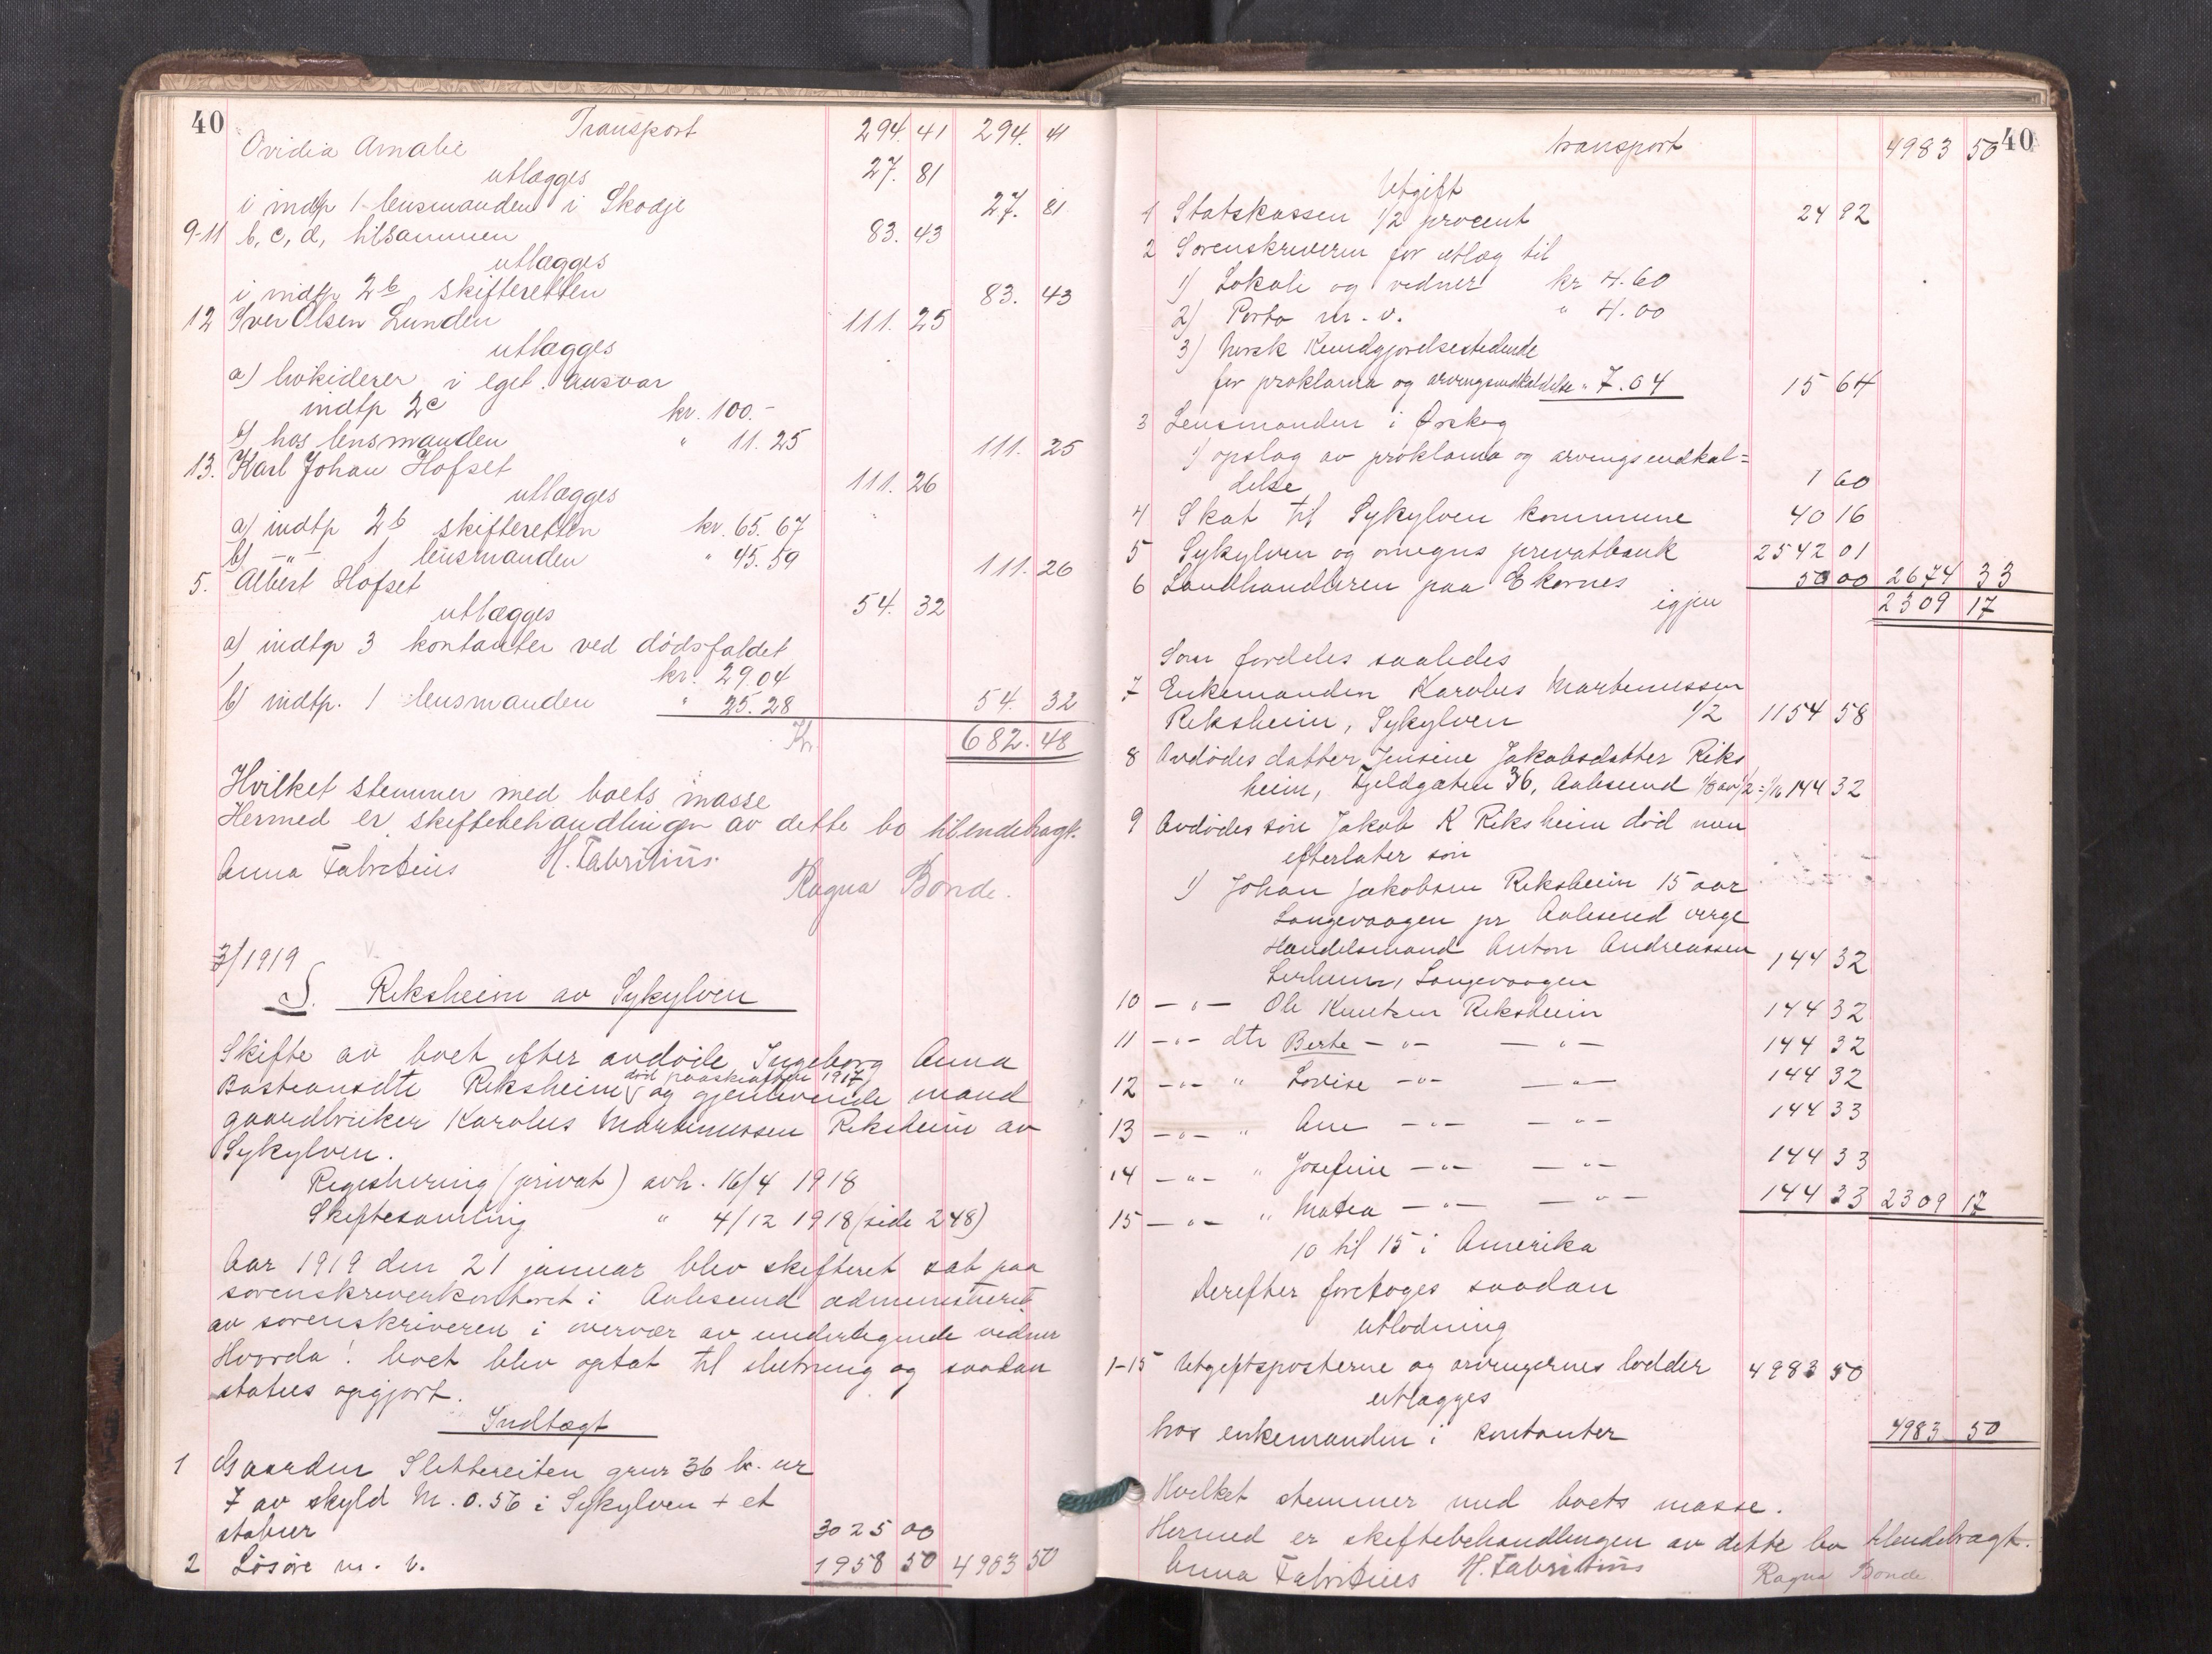 40
Transport 294. 41 294. 41
Ovidia Amalie 27. 81
utlægges
i indtp 1 lensmanden i Skodje 27. 81
9-11 b, c, d, tilsammen 83. 43
utlægges
i indtp 2b skifteretten 83. 43
12 Iver Olsen Lunden 111. 25
utlægges
a) livkiderer i eget ansvar
indtp 2c kr. 100.-
b) hos lensmanden " 11. 25 111. 25
13. Karl Johan Hofset 111. 26
utlægges
a) indtp 2b skifteretten kr. 65. 67
b) -"- 1 lensmanden " 45. 59 111. 26
5. Albert Hofset 54. 32
utlægges
a) indtp 3 kontanter ved dødsfaldet
kr. 29.04
b) indtp. 1 lensmanden " 25. 28 54. 32
Kr. 682. 48
Hvilket stemmer med boets masse
Hermed er skiftebehandlingen av dette bo tilendebragt.
Anna Fabritius H. Fabritius.
Ragna Bonde.
3/1919
S. Riksheim av Sykylven
Skifte av boet efter avdöde Ingeborg Anna
Bastiansdtr Riksheim död paaskeaften 1917 og gjenlevende mand
gaardbruker Karolus Martinussen Riksheim av
Sykylven.
Registrering (privat) avh. 16/4 1918
Skiftesamling " 4/12 1918 (side 248)
Aar 1919 den 21 januar blev skifteret sat paa
sorenskriverkontoret i Aalesund administreret
av sorenskriveren i overvær av undertegnede vidner
Hvorda! boet blev optat til slutning og saadan
status opgjort.
Indtægt
1 Gaarden Slettereiten gnr 36 br. nr
7 av skyld M. 0.56 i Sykylven + et
stabur 3025 00
2 Lösöre m. v. 1958 50 4983 50
40
transport 4983 50
Utgift
1 Statskassen 1/2 procent 24 92
2 Sorenskriveren for utlæg til
1) Lokale og vidner kr 4.60
2) Porto m. v. " 4.00
3) Norsk Kundgjørelsestidende
for proklama og arvingsindkaldelse " 7.04 15 64
3 Lensmanden i Ørskog
1) opslag av proklama og arvingsindkal=
delse 1 60
4 Skat til Sykylven kommune 40 16
5 Sykylven og omegns privatbank 2542 01
6 Landhandleren paa Ekornes 50 00 2674 33
igjen 2309 17
Som fordeles saaledes
7 Enkemanden Karolus Martinussen
Riksheim, Sykylven 1/2 1154 58
8 Avdödes datter Jensine Jakobsdatter Riks
heim, Fjeldgaten 36, Aalesund 1/8 av 1/2 = 1/16 144 32
9 Avdödes sön Jakob K Riksheim död men
efterlater sön
1) Johan Jakobsen Riksheim 15 aar
Langevaagen pr Aalesund verge
Handelsmand Anton Andreassen
Lerheim, Langevaagen 144 32
10 -"- Ole Knutsen Riksheim 144 32
11 -"- dtr Berte -"- -"- 144 32
12 -"- " Lovise -"- -"- 144 32
13 -"- " Ane -"- -"- 144 33
14 -"- " Josefine -"- -"- 144 33
15 -"- " Matea -"- -"- 144 33 2309 17
10 til 15 i Amerika
Derefter foretoges saadan
utlodning
1-15 Utgiftsposterne og arvingernes lodder 4983 50
utlægges
hos enkemanden i kontanter 4983 50
Hvilket stemmer med boets masse.
Hermed er skiftebehandlingen av dette bo tilendebragt.
Anna Fabritius H. Fabritius Ragna Bonde